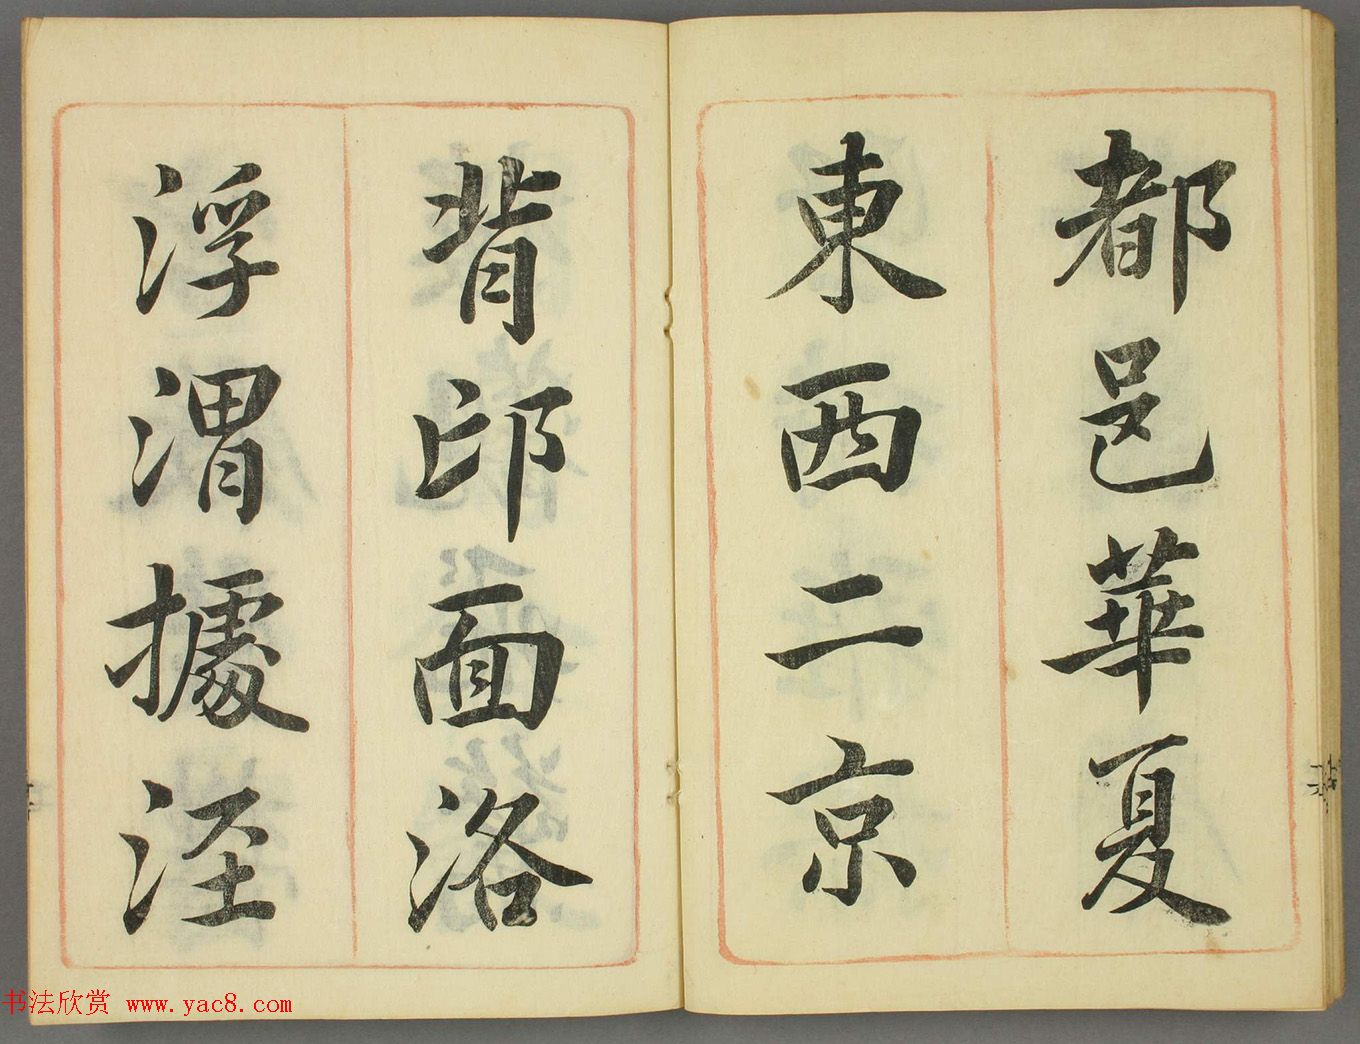 都邑華夏
東西二京
背邙面洛
浮渭據涇
书法欣赏 www.yac8.com